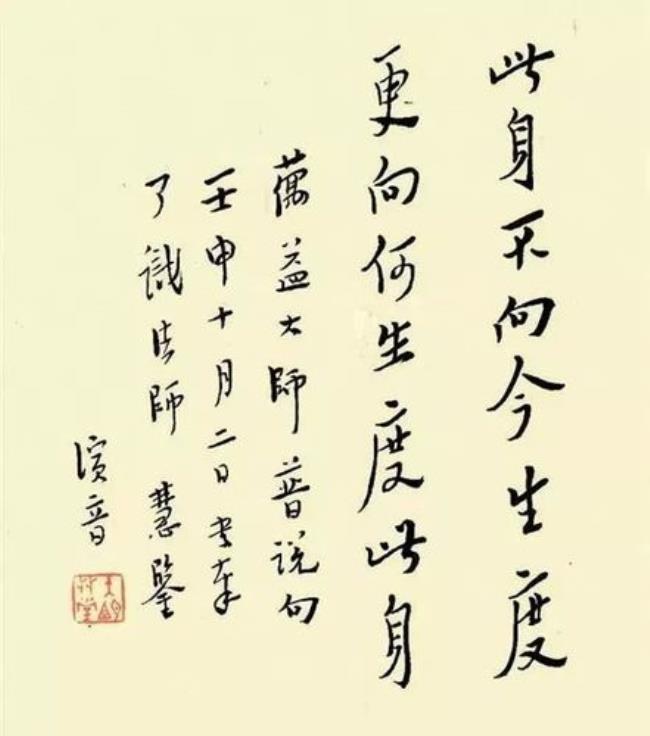 此身不向今生度
更向何生度此身
蕅益大師普說句
壬申十月二日書奉
了識法師 慧鑒
演音